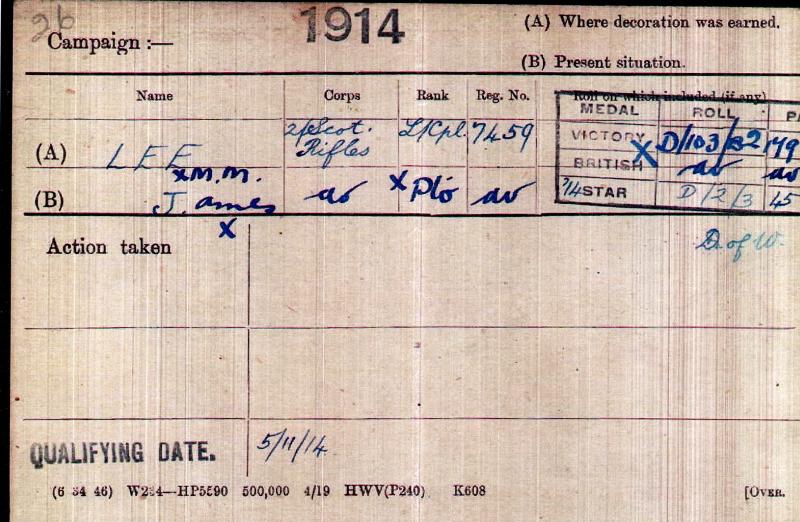 26
Campaign :— 1914
(A) Where decoration was earned.
(B) Present situation.
Name Corps Rank Reg. No. Roll on which included (if any)
MEDAL ROLL PA
(A) LEE 2/Scot. Rifles L/Cpl. 7459
VICTORY D/103/B2 179
x M.M.
BRITISH do do
(B) J. ames do x Pte do
'14 STAR D/2/3 45
x
Action taken
D. of W.
QUALIFYING DATE. 5/11/14
(6 34 46) W234—HP5590 500,000 4/19 HWV(P240) K608 [OVER.